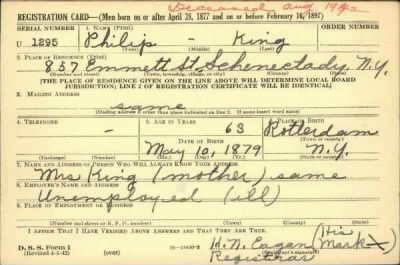 Deceased Aug 1942
REGISTRATION CARD—(Men born on or after April 28, 1877 and on or before February 16, 1897)
SERIAL NUMBER 1. NAME (Print) ORDER NUMBER
U 1295 Philip - King
(First) (Middle) (Last)
2. PLACE OF RESIDENCE (Print)
857 Emmett St. Schenectady, N.Y.
(Number and street) (Town, township, village, or city) (County) (State)
[THE PLACE OF RESIDENCE GIVEN ON THE LINE ABOVE WILL DETERMINE LOCAL BOARD
JURISDICTION; LINE 2 OF REGISTRATION CERTIFICATE WILL BE IDENTICAL]
3. MAILING ADDRESS
same
[Mailing address if other than place indicated on line 2. If same insert word same]
4. TELEPHONE 5. AGE IN YEARS 6. PLACE OF BIRTH
- 63 Rotterdam
DATE OF BIRTH (Town or county)
May 10, 1879 N.Y.
(Exchange) (Number) (Mo.) (Day) (Yr.) (State or country)
7. NAME AND ADDRESS OF PERSON WHO WILL ALWAYS KNOW YOUR ADDRESS
Mrs King (mother) same
8. EMPLOYER'S NAME AND ADDRESS
Unemployed (ill)
9. PLACE OF EMPLOYMENT OR BUSINESS
(Number and street or R. F. D. number) (Town) (County) (State)
I AFFIRM THAT I HAVE VERIFIED ABOVE ANSWERS AND THAT THEY ARE TRUE.
D. S. S. Form 1 H. N. Eagan (His Mark X)
(Revised 4-1-42) (over) (Registrant's signature)
Registrar